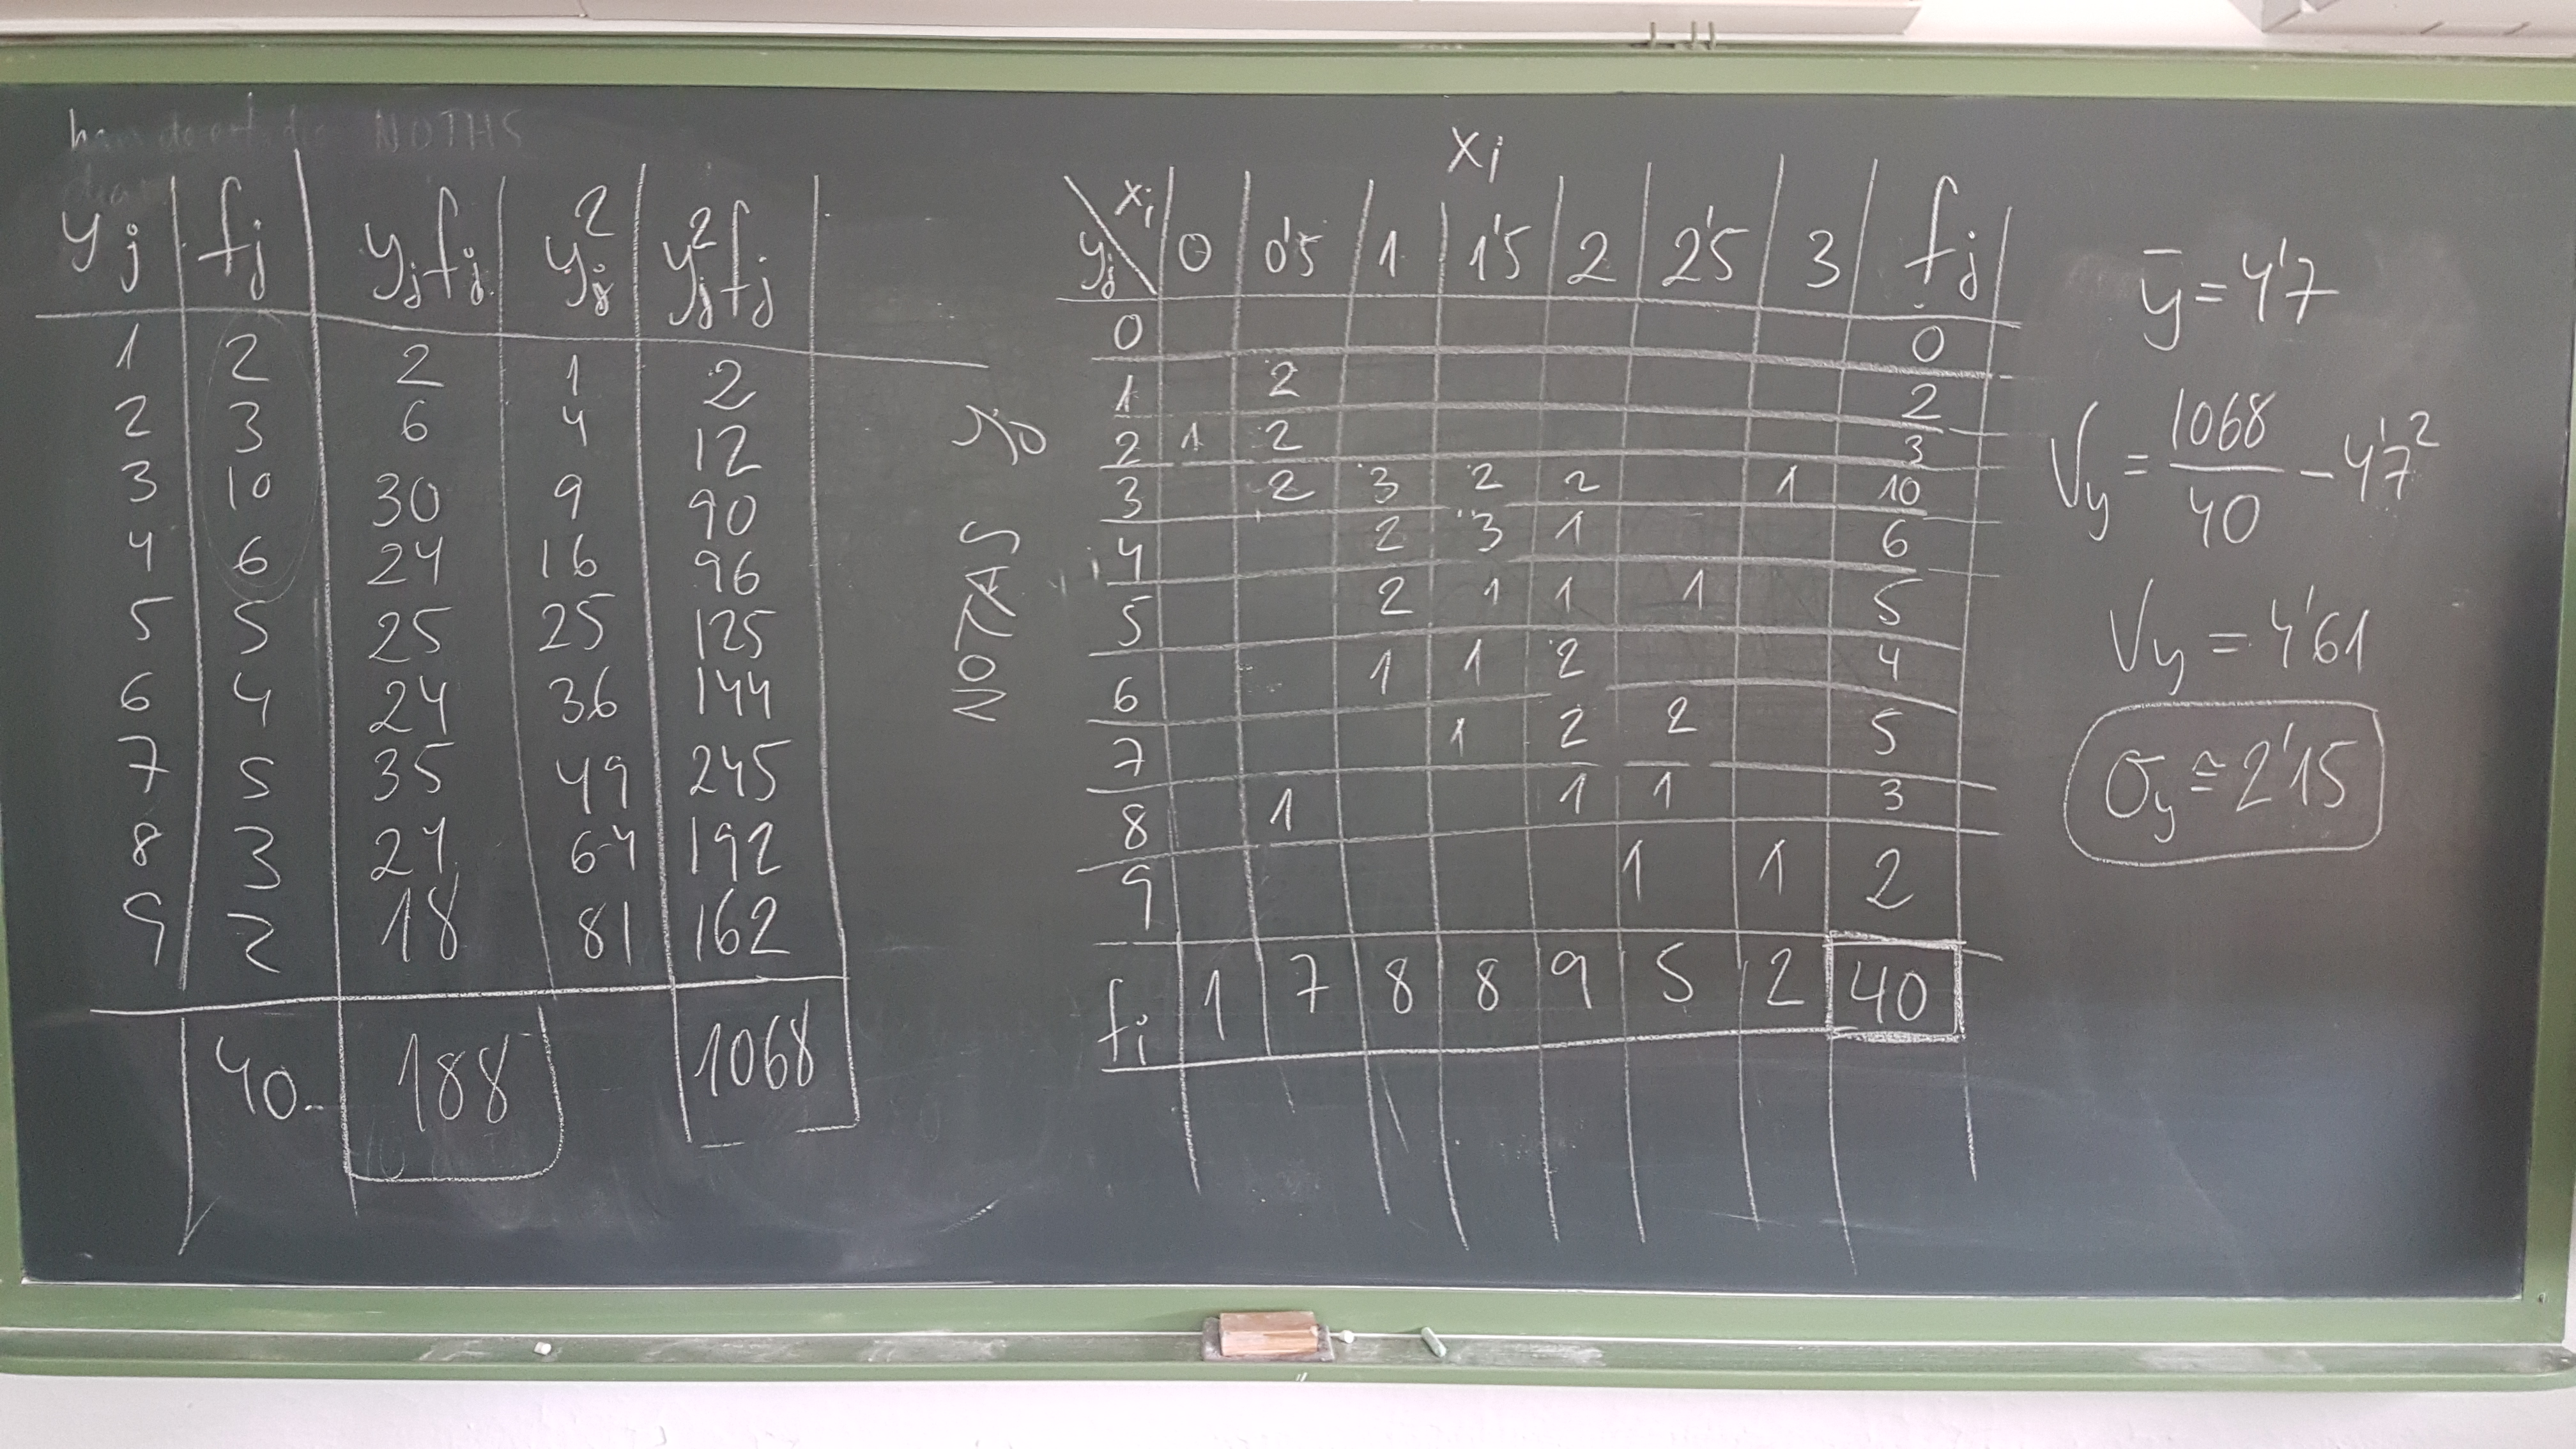 NOTAS
y_j f_j y_j f_j y_j² y_j² f_j
1 2 2 1 2
2 3 6 4 12
3 10 30 9 90
4 6 24 16 96
5 5 25 25 125
6 4 24 36 144
7 5 35 49 245
8 3 24 64 192
9 2 18 81 162
40 188 1068
NOTAS y_j
x_i
y_j \ x_i 0 0'5 1 1'5 2 2'5 3 f_j
0 0
1 2 2
2 1 2 3
3 2 3 2 2 1 10
4 2 3 1 6
5 2 1 1 1 5
6 1 1 2 4
7 1 2 2 5
8 1 1 1 3
9 1 1 2
f_i 1 7 8 8 9 5 2 40
ȳ = 4'7
V_y = 1068/40 - 4'7²
V_y = 4'61
σ_y ≅ 2'15